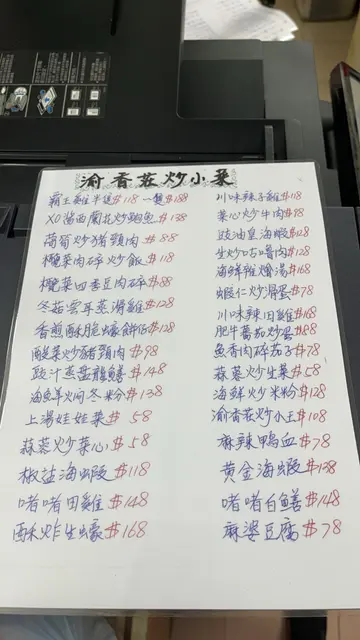 渝香荘炒小菜
霸王雞半隻$118 一隻$188
XO醬西蘭花炒鮑魚$138
蒜芶炒猪頸肉 $88
欖菜肉碎炒飯$118
欖菜四季豆肉碎$88
冬菇雲耳蒸滑雞$128
香煎酥脆蠔餅仔$128
酸菜炒豬頸肉$98
豉汁蒸盤龍鱔$148
海鮮火局冬粉$138
上湯娃娃菜$58
蒜蓉炒菜心$58
椒盐海蝦$118
啫啫田雞$148
酥炸生蠔$168
川味辣子雞$118
菜心炒牛肉$78
豉油皇海蝦$108
生炒咕嚕肉$128
海鮮酸辣湯$168
蝦仁炒滑蛋$78
川味田雞$168
肥牛蕃茄炒蛋$88
魚香肉碎茄子$78
蒜蓉炒生菜$58
海鮮炒米粉$128
渝香荘炒小王$108
麻辣鴨血$78
黄金海蝦$138
啫啫白鱔$148
麻婆豆腐$78